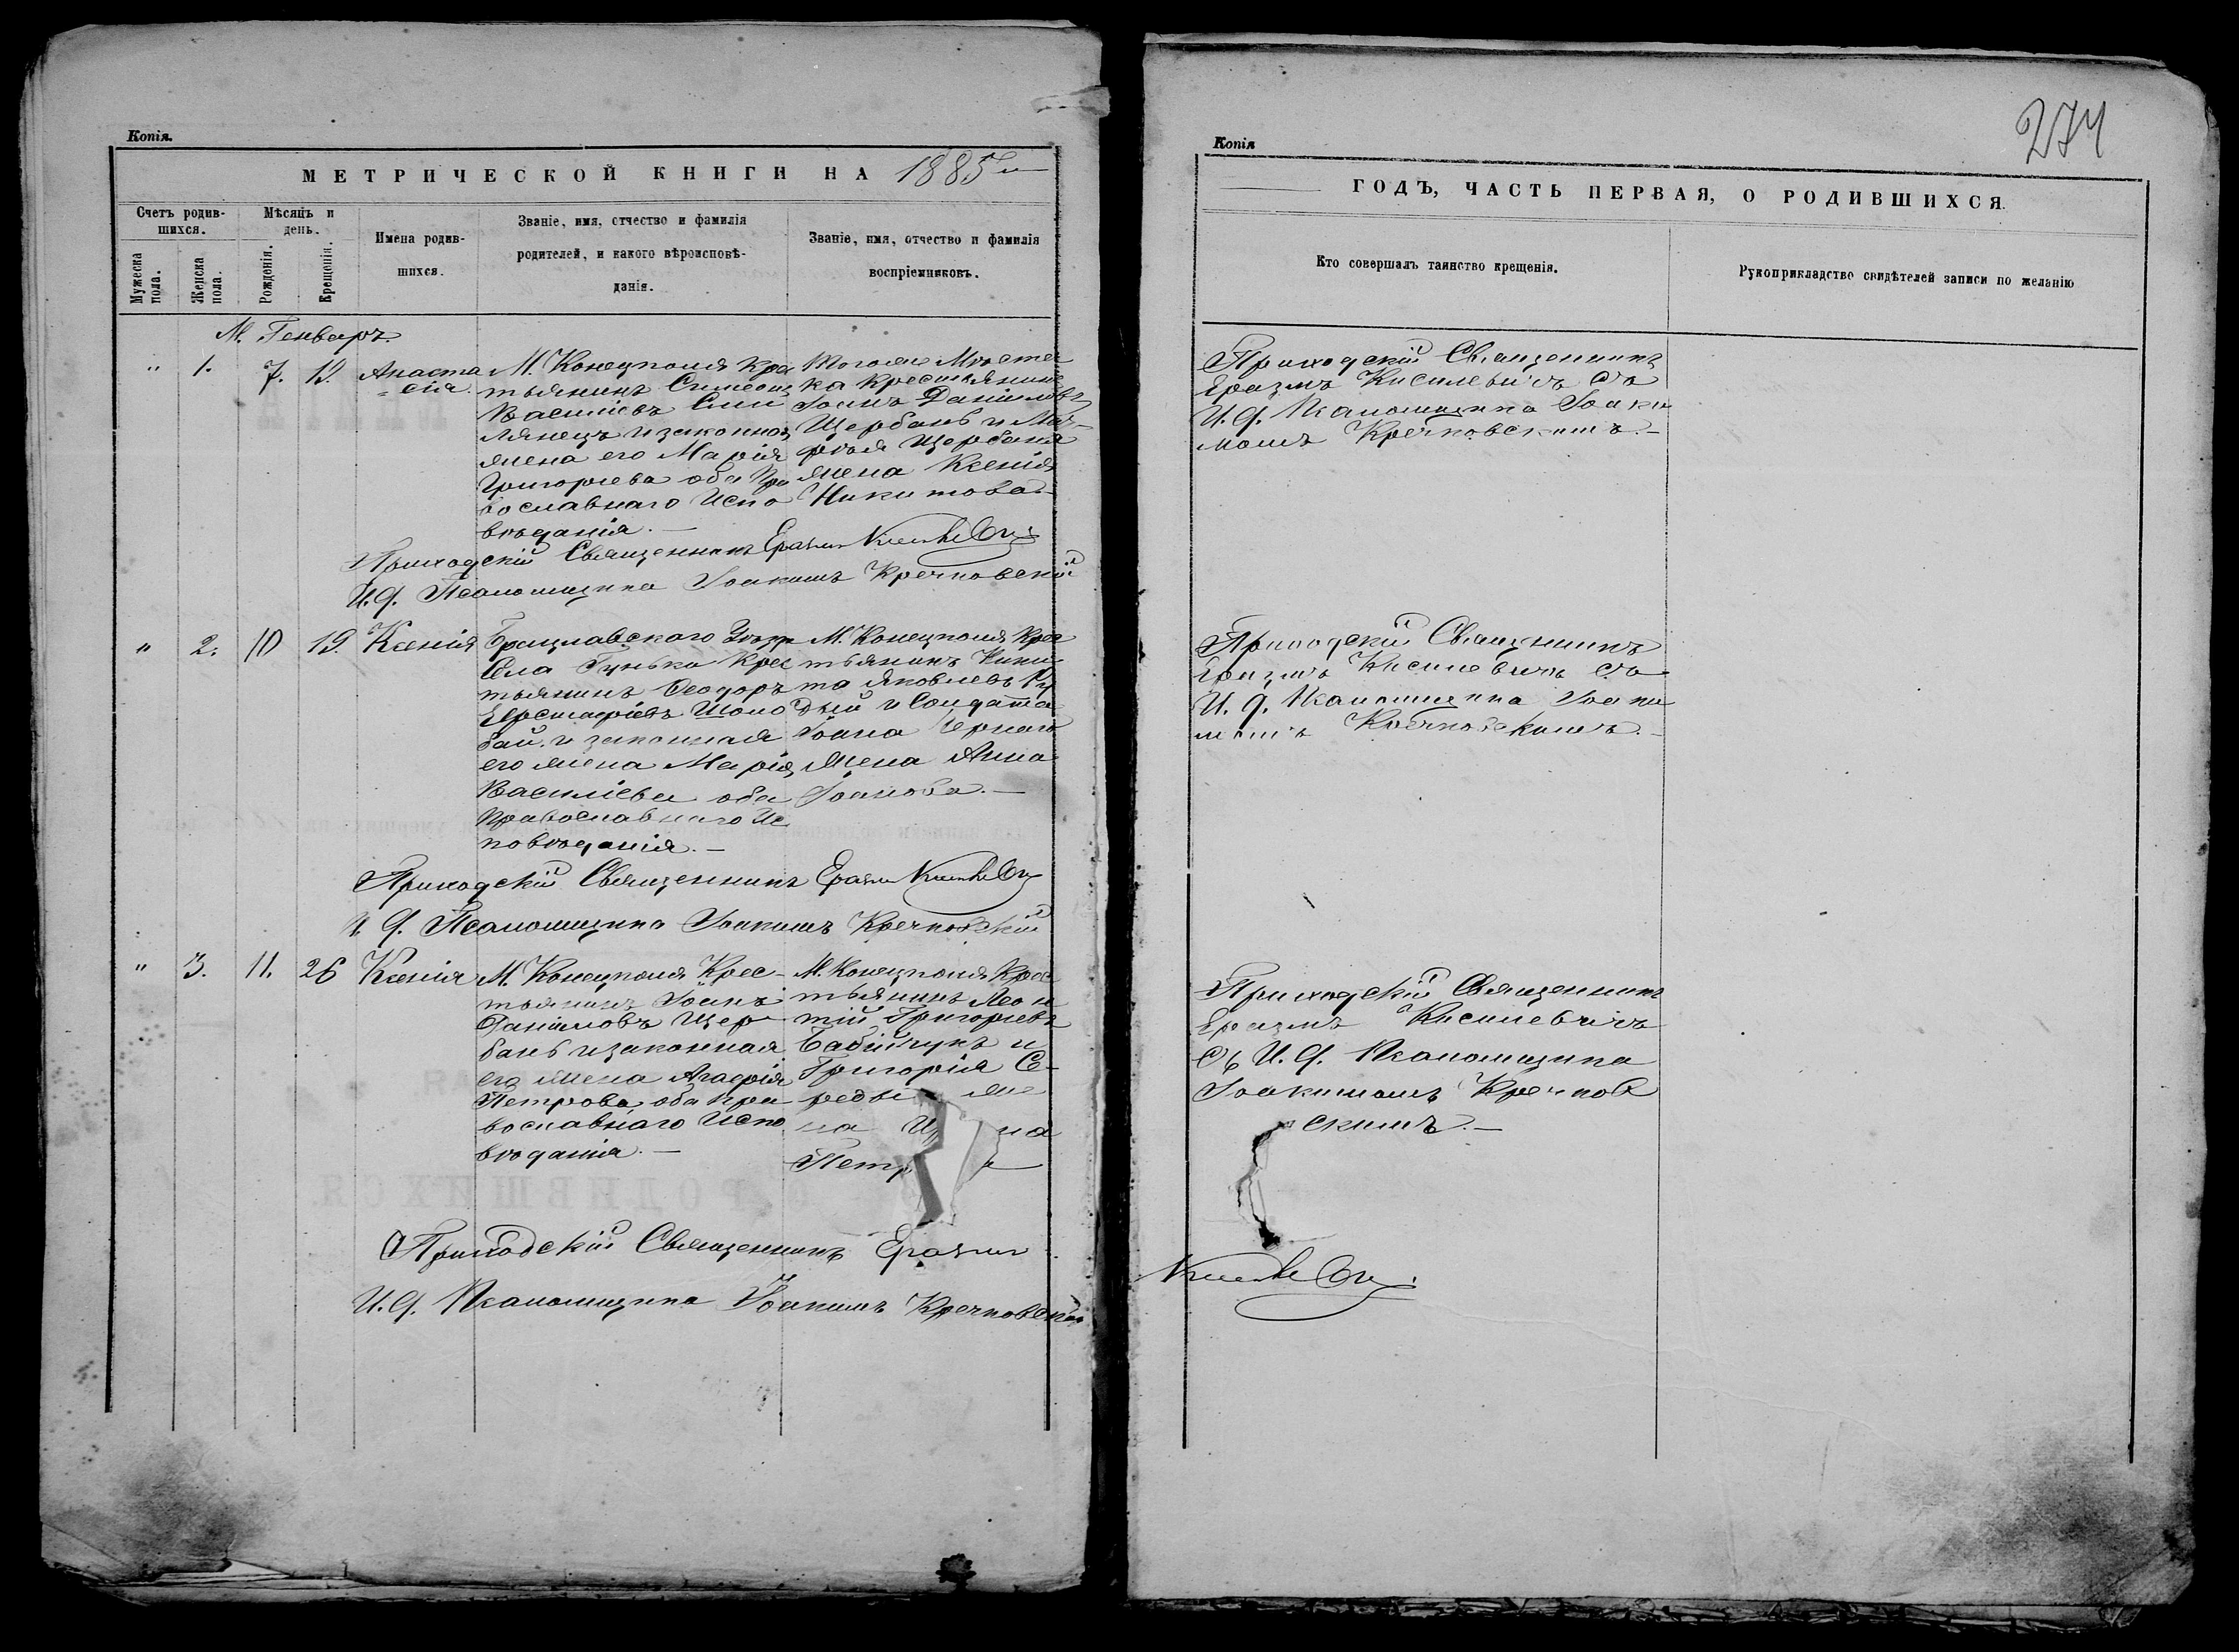 Копія.
МЕТРИЧЕСКОЙ КНИГИ НА 1885й
Счетъ родив-
шихся.
Мужеска пола.
Женска пола.
Мѣсяцъ и
день.
Рожденія.
Крещенія.
Имена родив-
шихся.
Званіе, имя, отчество и фамилія
родителей, и какого вѣроисповѣ-
данія.
Званіе, имя, отчество и фамилія
воспріемниковъ.
М. Генварь.
" 1. 7. 13. Анаста
сія.
М. Конецполя Кре
тьянинъ Симеонъ
Василіевъ Сми
лянецъ и законная
жена его Марія
Григорьева оба Пра
вославнаго Испо
вѣданія. —
Тогоже Мѣсте
ка Крестьянинъ
Іоанъ Даніиловъ
Щербань и
Щербаня
жена Ксенія
Никитова. —
Приходскій Священникъ Еразмъ Кисилевичъ
И. д. Псаломщика Іоакимъ Кречковскій
" 2. 10 19. Ксенія
Брацлавскаго Уѣзда
Села Гунька Крес
тьянинъ Ѳеодоръ
Евстафіевъ Шоло
бай и законная
его жена Марія
Василіева оба
Православнаго Ис
повѣданія. —
М. Конецполя Крес
тьянинъ Ники
та Яковлевъ
и Солдата
Іоана Чернаго
жена Анна
Іоанова. —
Приходскій Священникъ Еразмъ Кисилевичъ
И. д. Псаломщика Іоакимъ Кречковскій
" 3. 11. 26 Ксенія
М. Конецполя Крес-
тьянинъ Іоанъ
Даніиловъ Щер
бань и законная
его жена Агафія
Петрова оба Пра
вославнаго Испо
вѣданія. —
М. Конецполя Крес
тьянинъ Леон
тій Григорьевъ
Бабійчукъ и
Григорія Се-
реды же
на
Петр
Приходскій Священникъ Еразмъ
И. д. Псаломщика Іоакимъ Кречковскій
Копія
274
ГОДЪ, ЧАСТЬ ПЕРВАЯ, О РОДИВШИХСЯ.
Кто совершалъ таинство крещенія.
Рукоприкладство свидѣтелей записи по желанію
Приходскій Священникъ
Еразмъ Кисилевичъ съ
И. д. Псаломщика Іоаки
момъ Кречковскимъ. —
Приходскій Священникъ
Еразмъ Кисилевичъ съ
И. д. Псаломщика Іоаки
момъ Кречковскимъ. —
Приходскій Священникъ
Еразмъ Кисилевичъ
съ И. д. Псаломщика
Іоакимомъ Кречков
скимъ. —
Кисилевичъ